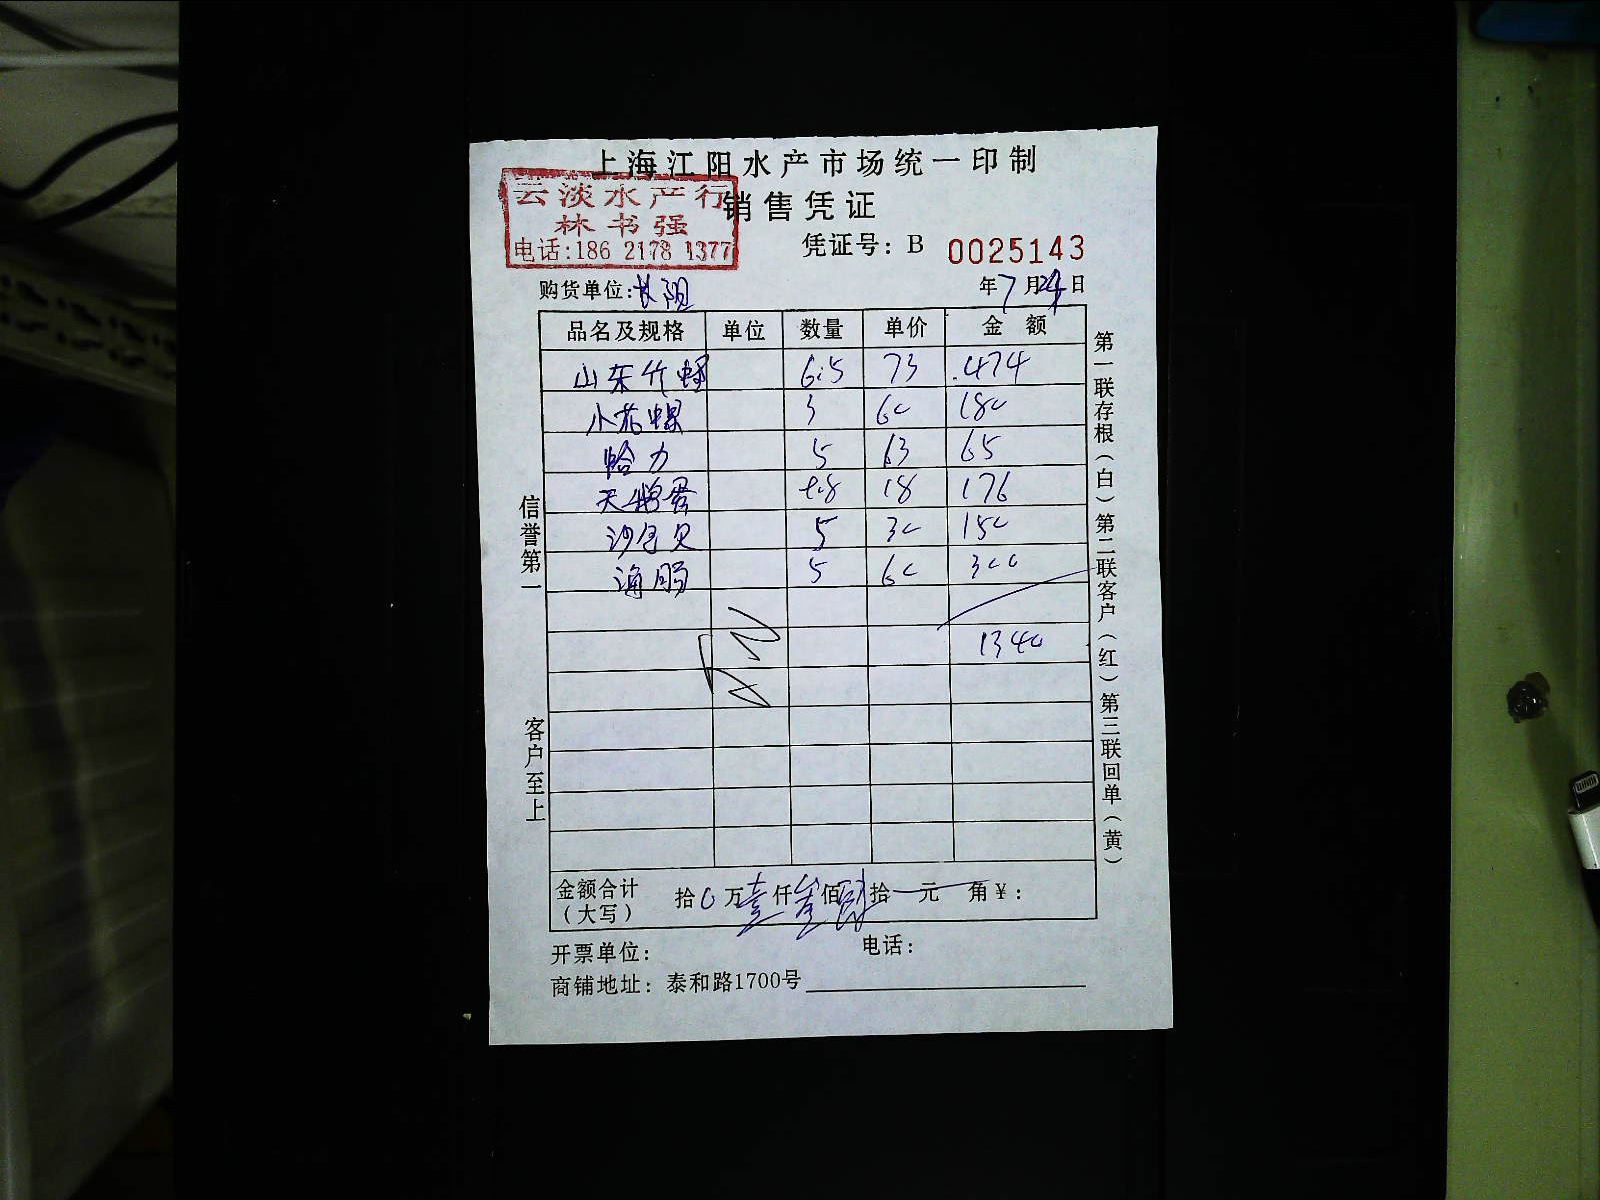 上海江阳水产市场统一印制
销售凭证
云淡水产行
林书强
电话:186 2178 1377
凭证号: B 0025143
购货单位:长阳 年7月24日
品名及规格 单位 数量 单价 金额
山东竹蛏 6.5 73 474
小花螺 3 60 180
蛤力 5 13 65
天鹅蛋 18 176
沙包贝 5 30 150
海肠 5 60 300
1340
信誉第一
客户至上
第一联存根(白)第二联客户(红)第三联回单(黄)
金额合计(大写) 拾0万壹仟叁佰肆拾元 角¥:
开票单位: 电话:
商铺地址: 泰和路1700号